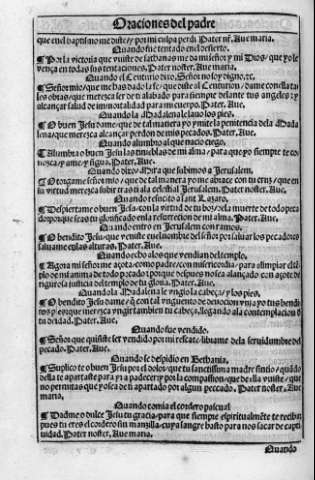 Oraciones del padre
que en el baptismo me diste/y por mi culpa perdi. Pater nr̃. Aue maria.
Quando fue tentado en el desierto.
¶ Por la victoria que vuiste de sathanas me da mi señor y mi Dios, que yo le
vença en todas sus tentaciones. Pater noster. Aue maria.
Quando el Centurio dixo, Señor no soy digno, ꝛc.
¶ Señor mio/que me has dado la fe/que diste al Centurion/dame con ella ta-
les obras/que merezca ser de ti alabado para siempre delante tus angeles: y
alcançar salud de immortalidad para mi cuerpo. Pater. Aue.
Quando la Madalena le lauo los pies.
¶ O buen Jesu dame que de tal manera yo ymite la penitencia dela Mada
lena/que merezca alcançar perdon de mis pecados. Pater. Aue.
Quando alumbro al que nacio ciego.
¶ Alumbra o buen Jesu las tinieblas de mi alma/para que yo siempre te co-
nozca/y ame/y sigua. Pater. Aue.
Quando dixo: Mira que subimos a Jerusalem.
¶ Otorgame señor mio/que de tal manera yo me abrace con tu cruz/que en
tu virtud merezca subir tras ti ala celestial Jerusalem. Pater noster. Aue.
Quando resuscito a sant Lazaro.
¶ Despiertame o buen Jesu con la virtud de tu boz/dela muerte de todo peca
do: porque seas tu glorificado en la resurrecion de mi alma. Pater. Aue.
Quando entro en Jerusalem con ramos.
¶ O bendito Jesu/que veniste en el nombre del señor por saluar los pecadores
saluame en las alturas. Pater. Aue.
Quando echo alos que vendian del templo.
¶ Agora mi señor me açota como padre/con misericordia/para alimpiar el tē-
plo de mi anima de todo pecado: porque despues no sea alançado con açote de
rigurosa justicia del templo de tu gloria. Pater. Aue.
Quando la Madalena le vngio la cabeça/y los pies.
¶ O bendito Jesu dame/q̃ con tal vnguento de deuocion vnja yo tus bendi-
tos pies: que merezca vngir tambien tu cabeça, llegando ala contemplacion d̃
tu deidad. Pater. Aue.
Quando fue vendido.
¶ Señor que quisiste ser vendido por mi rescate/librame dela seruidumbre del
pecado. Pater. Aue.
Quando se despidio en Bethania.
¶ Suplico te o buen Jesu por el dolor, que tu sanctissima madre sintio/quãdo
della te apartaste para yr a padecer: y por la compassion/que de ella vuiste/que
no permitas que yo sea de ti apartado por algun peccado. Pater noster. Aue
maria.
Quando comia el cordero pascual
¶ Dadme o dulce Jesu tu gracia/para que siempre espiritualmẽte te reciba:
pues tu eres el cordero sin manzilla/cuya sangre basto para nos sacar de capti-
uidad. Pater noster. Aue maria.
Quando